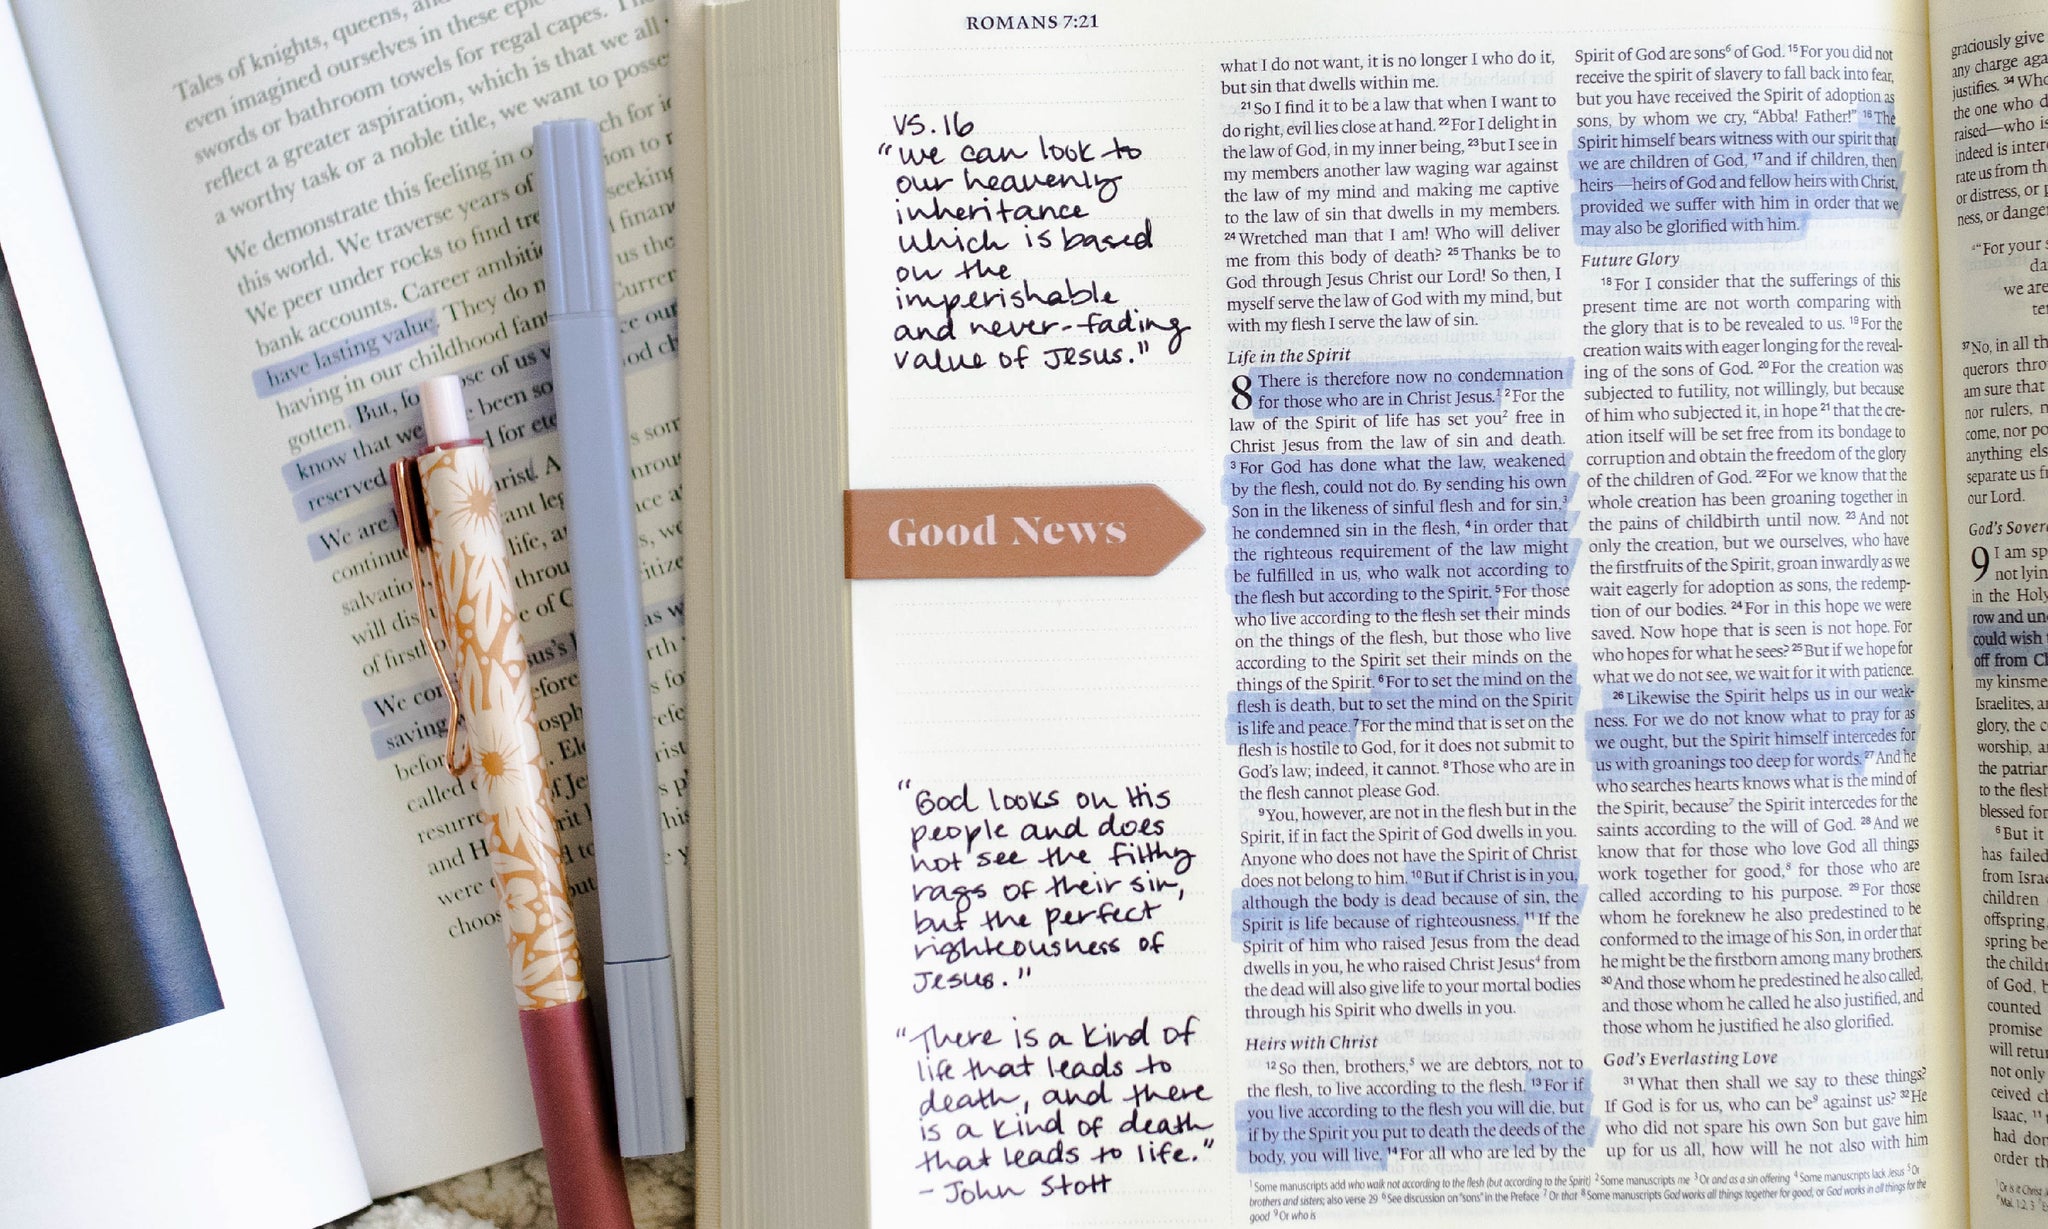 Tales of knights, queens,
even imagined ourselves in these
swords or bathroom towels for regal capes.
reflect a greater aspiration, which is that we all
a worthy task or a noble title, we want to
We demonstrate this feeling in
this world. We traverse years of seeking
We peer under rocks to find
bank accounts. Career us the
have lasting value. They do
having in our childhood
gotten. But, of us
know that we been
reserved for
We are
continue
salvation,
will
of
We
saving
before
called
and
were
ROMANS 7:21
VS. 16
"we can look to
our heavenly
inheritance
which is based
on the
imperishable
and never-fading
value of Jesus."
Good News
"God looks on His
people and does
not see the filthy
rags of their sin,
but the perfect
righteousness of
Jesus."
"There is a kind of
life that leads to
death, and there
is a kind of death
that leads to life."
- John Stott
what I do not want, it is no longer I who do it,
but sin that dwells within me.
21 So I find it to be a law that when I want to
do right, evil lies close at hand. 22 For I delight in
the law of God, in my inner being, 23 but I see in
my members another law waging war against
the law of my mind and making me captive
to the law of sin that dwells in my members.
24 Wretched man that I am! Who will deliver
me from this body of death? 25 Thanks be to
God through Jesus Christ our Lord! So then, I
myself serve the law of God with my mind, but
with my flesh I serve the law of sin.
Life in the Spirit
8 There is therefore now no condemnation
for those who are in Christ Jesus.1 2 For the
law of the Spirit of life has set you2 free in
Christ Jesus from the law of sin and death.
3 For God has done what the law, weakened
by the flesh, could not do. By sending his own
Son in the likeness of sinful flesh and for sin,3
he condemned sin in the flesh, 4 in order that
the righteous requirement of the law might
be fulfilled in us, who walk not according to
the flesh but according to the Spirit. 5 For those
who live according to the flesh set their minds
on the things of the flesh, but those who live
according to the Spirit set their minds on the
things of the Spirit. 6 For to set the mind on the
flesh is death, but to set the mind on the Spirit
is life and peace. 7 For the mind that is set on the
flesh is hostile to God, for it does not submit to
God's law; indeed, it cannot. 8 Those who are in
the flesh cannot please God.
9 You, however, are not in the flesh but in the
Spirit, if in fact the Spirit of God dwells in you.
Anyone who does not have the Spirit of Christ
does not belong to him. 10 But if Christ is in you,
although the body is dead because of sin, the
Spirit is life because of righteousness. 11 If the
Spirit of him who raised Jesus from the dead
dwells in you, he who raised Christ Jesus4 from
the dead will also give life to your mortal bodies
through his Spirit who dwells in you.
Heirs with Christ
12 So then, brothers,5 we are debtors, not to
the flesh, to live according to the flesh. 13 For if
you live according to the flesh you will die, but
if by the Spirit you put to death the deeds of the
body, you will live. 14 For all who are led by the
Spirit of God are sons6 of God. 15 For you did not
receive the spirit of slavery to fall back into fear,
but you have received the Spirit of adoption as
sons, by whom we cry, "Abba! Father!" 16 The
Spirit himself bears witness with our spirit that
we are children of God, 17 and if children, then
heirs—heirs of God and fellow heirs with Christ,
provided we suffer with him in order that we
may also be glorified with him.
Future Glory
18 For I consider that the sufferings of this
present time are not worth comparing with
the glory that is to be revealed to us. 19 For the
creation waits with eager longing for the reveal-
ing of the sons of God. 20 For the creation was
subjected to futility, not willingly, but because
of him who subjected it, in hope 21 that the cre-
ation itself will be set free from its bondage to
corruption and obtain the freedom of the glory
of the children of God. 22 For we know that the
whole creation has been groaning together in
the pains of childbirth until now. 23 And not
only the creation, but we ourselves, who have
the firstfruits of the Spirit, groan inwardly as we
wait eagerly for adoption as sons, the redemp-
tion of our bodies. 24 For in this hope we were
saved. Now hope that is seen is not hope. For
who hopes for what he sees? 25 But if we hope for
what we do not see, we wait for it with patience.
26 Likewise the Spirit helps us in our weak-
ness. For we do not know what to pray for as
we ought, but the Spirit himself intercedes for
us with groanings too deep for words. 27 And he
who searches hearts knows what is the mind of
the Spirit, because7 the Spirit intercedes for the
saints according to the will of God. 28 And we
know that for those who love God all things
work together for good,8 for those who are
called according to his purpose. 29 For those
whom he foreknew he also predestined to be
conformed to the image of his Son, in order that
he might be the firstborn among many brothers.
30 And those whom he predestined he also called,
and those whom he called he also justified, and
those whom he justified he also glorified.
God's Everlasting Love
31 What then shall we say to these things?
If God is for us, who can be9 against us? 32 He
who did not spare his own Son but gave him
up for us all, how will he not also with him
1 Some manuscripts add who walk not according to the flesh (but according to the Spirit) 2 Some manuscripts me 3 Or and as a sin offering 4 Some manuscripts lack Jesus 5 Or
brothers and sisters; also verse 29 6 See discussion on "sons" in the Preface 7 Or that 8 Some manuscripts God works all things together for good, or God works in all things for the
good 9 Or who is
graciously give
any charge
justifies. 34
the one who
raised—who is
indeed is
rate us from
or distress, or
ness, or
"For your
we are
37 No, in all
querors
am sure that
nor rulers,
come, nor
anything
separate us
our Lord.
God's
9 I am
not
in the
row and
could wish
off from
my
Israelites,
glory, the
worship,
the
to the
blessed for
6 But it
has failed
from
children
offspring,
spring be
the
of God,
counted
promise
will
not only
ceived
Isaac, 11
had
order